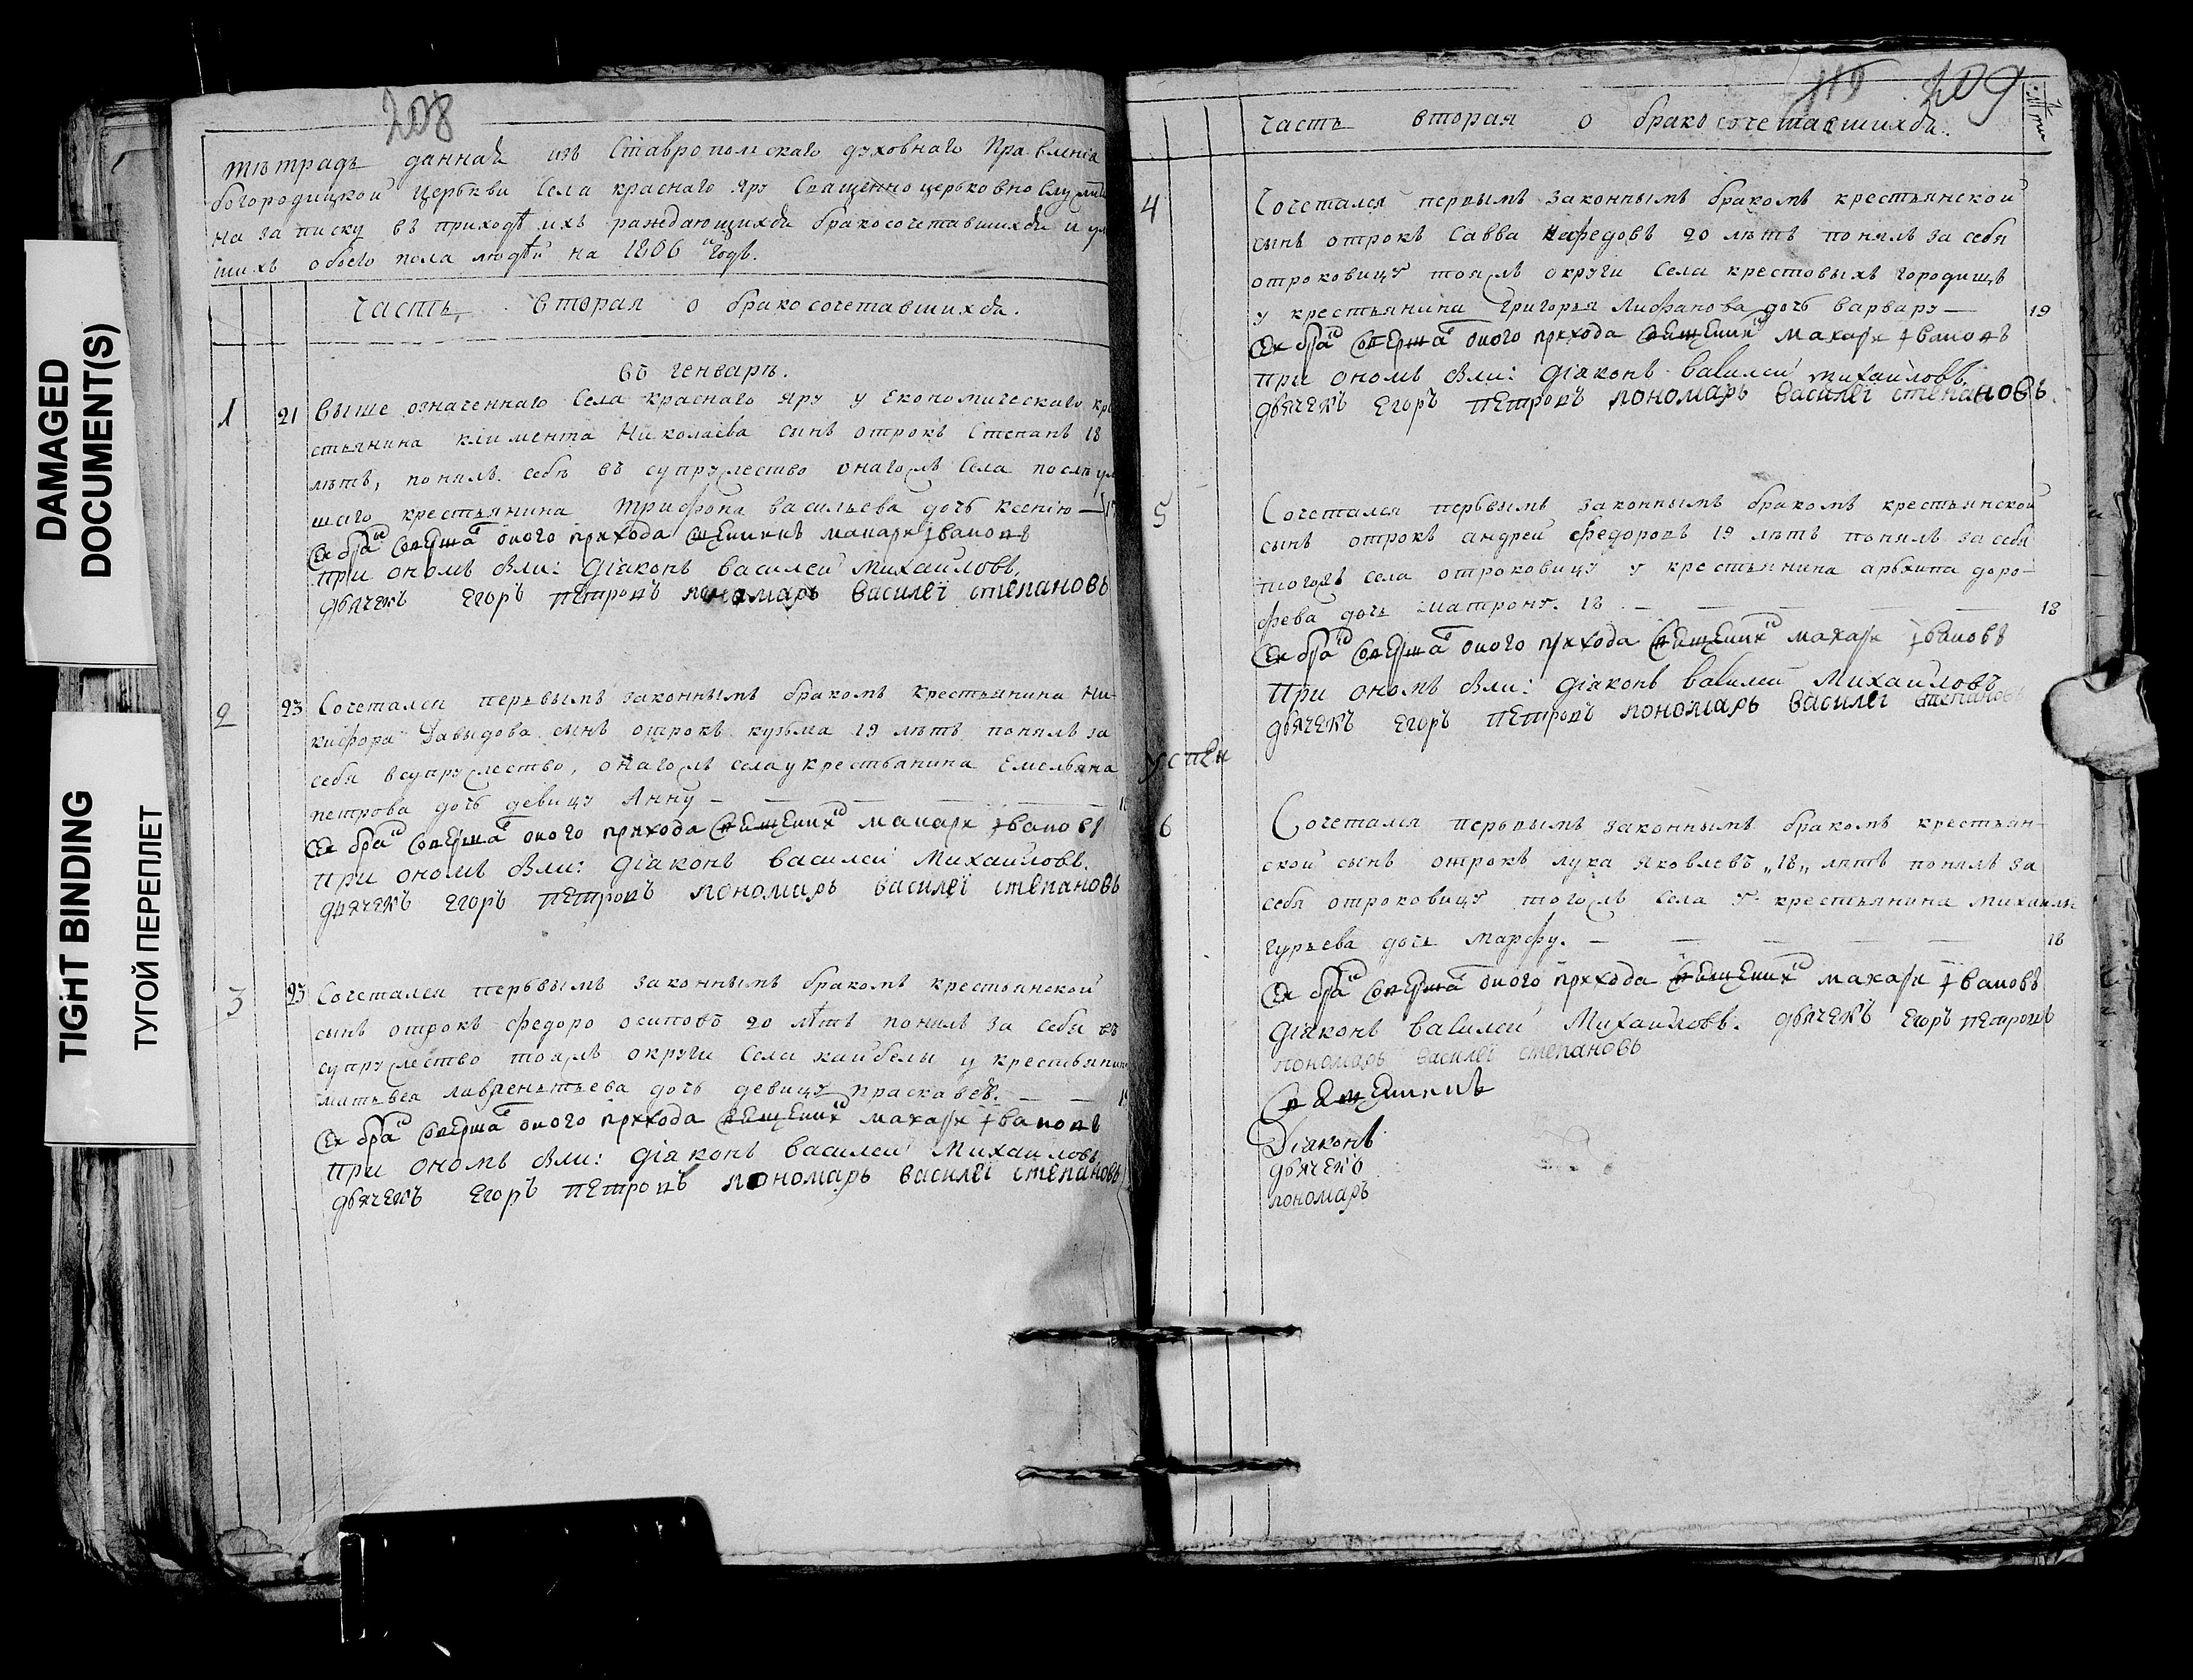 DAMAGED
DOCUMENT(S)
TIGHT BINDING
ТУГОЙ ПЕРЕПЛЕТ
208
тѣтрадь данная изъ Ставропольскаго духовнаго Правленія
богородицкой Церькви Села краснаго Яру Священноцерьковнослужит
на записку въ приходѣ ихъ раждающихся бракосочетавшихся и ум
шихъ обоего пола людѣй на 1806 годъ.
Часть вторая о бракосочетавшихся.
въ генварѣ.
1 21 Выше означеннаго Села краснаго Яру у Економическаго кре
стьянина климента Николаева сынъ отрокъ Степанъ 18
лѣтъ, понялъ себѣ въ супружество онагожъ Села послѣ ум
шаго крестьянина Трифона васильева дочь ксенію —
Сей бракъ оного прихода макари Ивановъ
при ономъ были: діаконъ василей Михайловъ,
дьячекъ Егоръ пЕтровъ пономарь василеі степановъ
2 23 Сочетался перьвымъ законнымъ бракомъ крестьянина Ни-
кифора Давыдова сынъ отрокъ кузьма 19 лѣтъ понялъ за
себя всупружество, онагожъ села у крестьянина Емельяна
петрова дочь девицу Анну —
Сей бракъ оного прихода макари Ивановъ
при ономъ были: діаконъ василей Михайловъ.
дьячекъ Егоръ пЕтровъ пономарь василеі степановъ
3 23 Сочетался перьвымъ законнымъ бракомъ крестьянской
сынъ отрокъ федоро осиповъ 20 лѣтъ понялъ за себя въ
супружество тояжъ округи Села кайбелы у крестьянин
матьвеа лаврентьева дочь девицу праскавею. —
Сей бракъ оного прихода макари Ивановъ
при ономъ были: діаконъ василей Михайловъ
дьячекъ Егоръ пЕтровъ пономарь василеі степановъ
209
Часть вторая о бракосочетавшихся.
4 Сочетался первымъ законнымъ бракомъ крестьянской
сынъ отрокъ Савва 20 лѣтъ понялъ за себя
отроковицу тояжъ округи Села крестовыхъ городищъ
у крестьянина Григорья Лифанова дочь варвару — 19
Сей бракъ оного прихода макари Ивановъ
при ономъ были: діаконъ василей михайловъ.
дьячекъ Егоръ пЕтровъ пономарь василеі степановъ.
5 Сочетался перьвымъ законнымъ бракомъ крестьянской
сынъ отрокъ андрей федоровъ 19 лѣтъ понялъ за себя
тогожъ села отроковицу у крестьянина архипа доро-
фева дочь матрону. 18 — 18
Сей бракъ оного прихода макари Ивановъ
При ономъ были: діаконъ василей Михайловъ
дьячекъ Егоръ пЕтровъ пономарь василеі степановъ
6 Сочетался перьвымъ законнымъ бракомъ крестьян-
ской сынъ отрокъ лука Яковлевъ „18„ лѣтъ понялъ за
себя отроковицу тогожъ села у крестьянина Михаилы
гурьева дочь марфу. — 18
Сей бракъ оного прихода макари Ивановъ
діаконъ василей Михайловъ. дьячекъ Егоръ пЕтровъ
пономарь василеі степановъ
Діаконъ
дьячекъ
пономарь